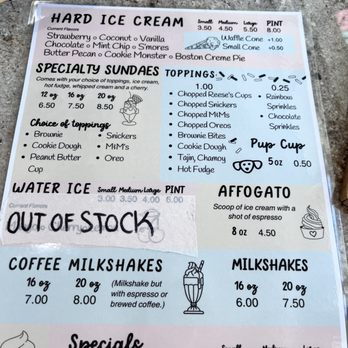 HARD ICE CREAM Small Medium Large PINT
3.50 4.50 5.50 8.00
Current Flavors
Strawberry o Coconut o Vanilla
Waffle Cone +1.00
Chocolate o Mint Chip o S'mores
Small Cone +0.50
Butter Pecan o Cookie Monster o Boston Creme Pie
SPECIALTY SUNDAES
Comes with your choice of toppings, ice cream,
hot fudge, whipped cream and a cherry.
12 oz 16 oz 20 oz
6.50 7.50 8.50
Choice of toppings
• Brownie
• Cookie Dough
• Peanut Butter
Cup
• Snickers
• M&M's
• Oreo
TOPPINGS
1.00
• Chopped Reese's Cups
• Chopped Snickers
• Chopped M&M's
• Chopped Oreos
• Brownie Bites
• Cookie Dough
• Tajin, Chamoy
• Hot Fudge
0.25
• Rainbow
Sprinkles
• Chocolate
Sprinkles
Pup Cup
5 oz 0.50
WATER ICE Small Medium Large PINT
3.00 3.50 4.00 6.00
Current Flavors
OUT OF STOCK
AFFOGATO
Scoop of ice cream with a
shot of espresso
8 oz 4.50
COFFEE MILKSHAKES
16 oz 20 oz
7.00 8.00
(Milkshake but
with espresso or
brewed coffee.)
MILKSHAKES
16 oz 20 oz
6.00 7.50
Specials